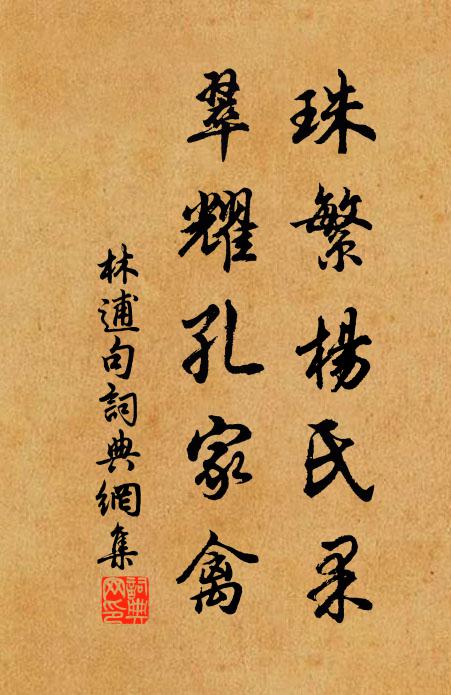 珠繁楊氏果
翠耀孔家禽
林逋句詞典網集
詞典网印